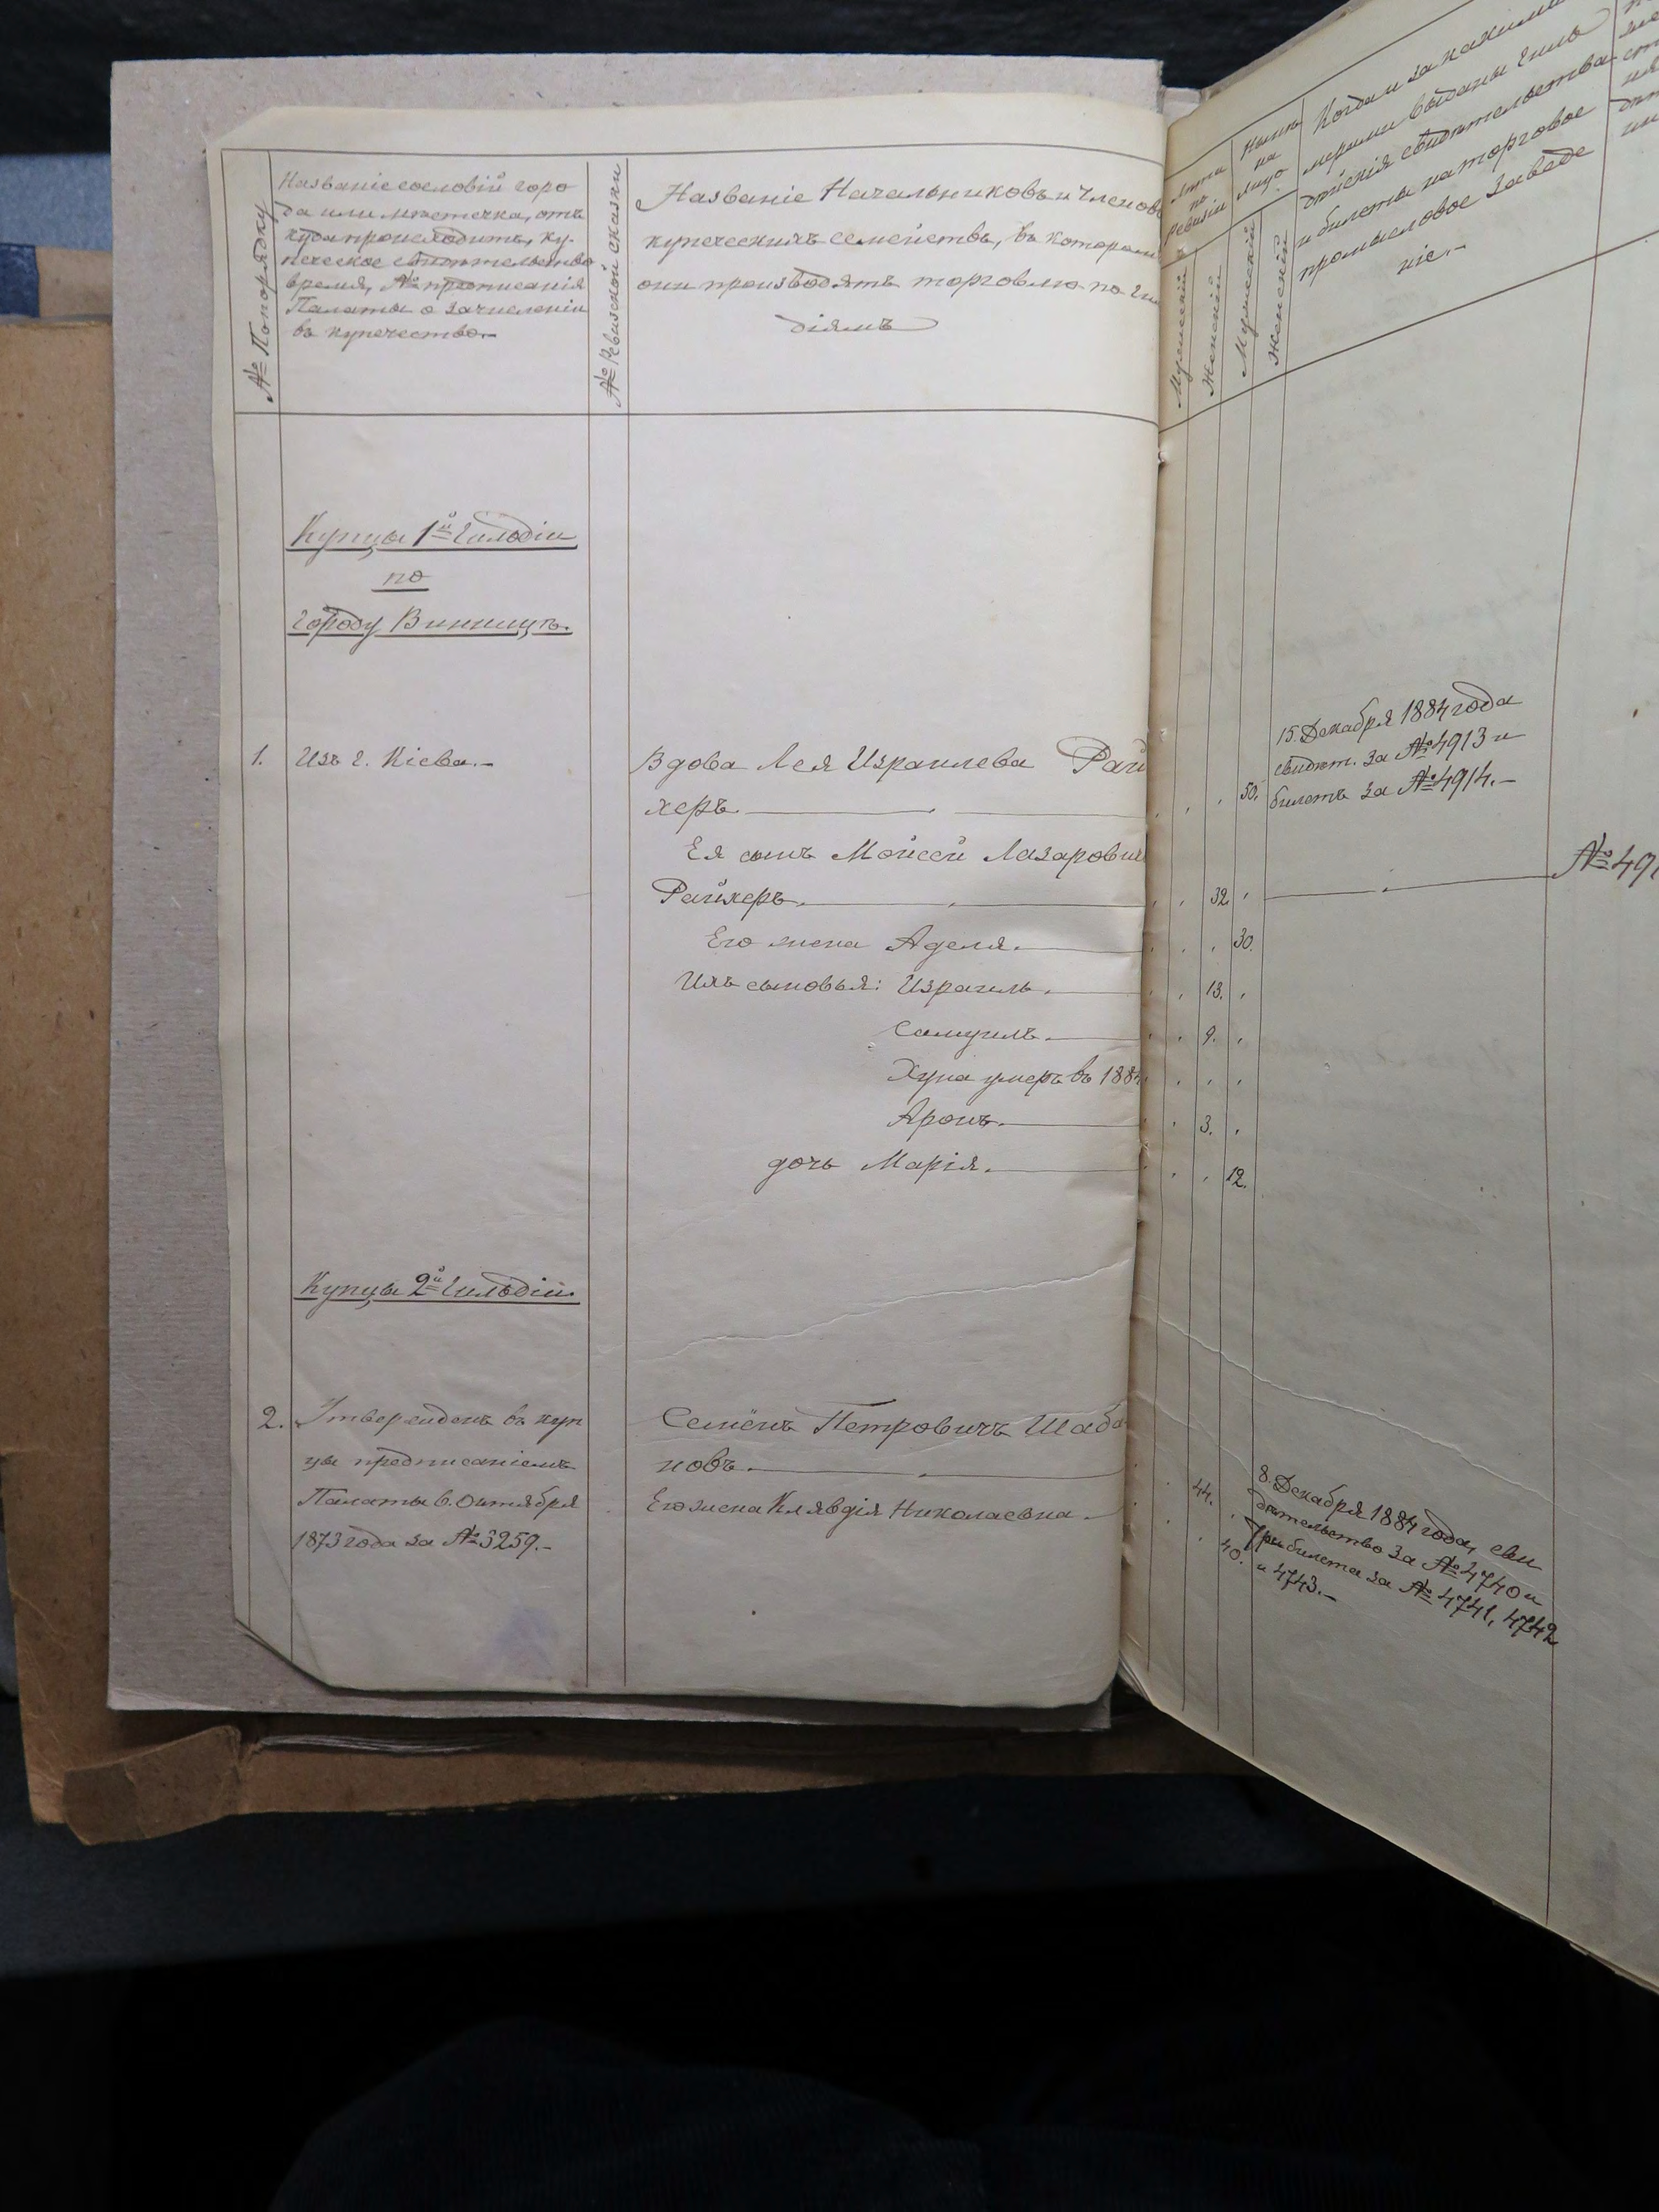 № По порядку
Названіе сословій горо
да или мѣстечка, отъ
куда происходитъ, ку-
печеское свидѣтельство
время, № предписанія
Палаты о зачисленіи
въ купечество.-
№ Ревизской сказки
Названіе Начальниковъ и Членовъ
купеческихъ семействъ, въ которомъ
они производятъ торговлю по ги
діямъ
Лѣта
по
Ревизіи
Мужескій
Женскій
на
лицо
Мужескій
Женскій
Когда и за какими
мерами выданы гиль
дѣйскія свидѣтельства
и билеты на торговое
промысловое заведе
ніе.-
Купцы 1й Гильдіи
по
городу Винницѣ.
1. Изъ г. Кіева.-
Вдова Лея Израилева Рай
херъ
50.
15 Декабря 1884 года
свидѣт. за № 4913 и
билетъ за № 4914.-
Ея сынъ Мойсей Лазарович
Райхеръ. 32.
№ 491
Его жена Аделя. 30.
Ихъ сыновья: Израиль. 13.
Самуилъ. 9.
Хуна умеръ въ 1884
Аронъ. 3.
дочь Марія. 12.
Купцы 2й Гильдіи.
2. Утвержденъ въ куп
цы предписаніемъ
Палаты 6. Октября
1873 года за № 3259.-
Семёнъ Петровичъ Шаба
новъ. 44.
Его жена Клявдія Николаевна. 40.
8. Декабря 1884 года, сви
дѣтельство за № 4740 и
три билета за № 4741, 4742
и 4743.-